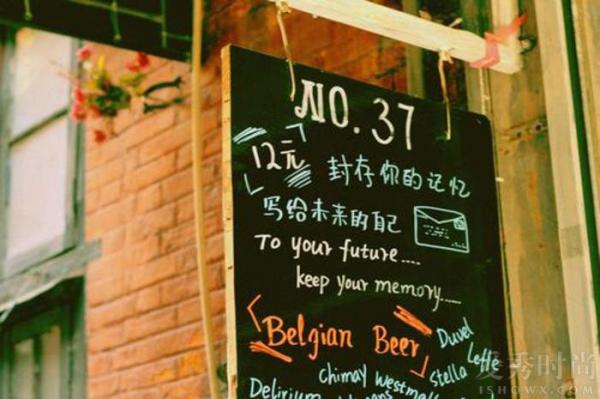 NO. 37
12元 封存你的记忆
写给未来的自己
To your future....
keep your memory.....
Belgian Beer
Duvel
Leffe
chimay Westmall
Stella
Delirium
爱秀时尚
ISHOWX.COM